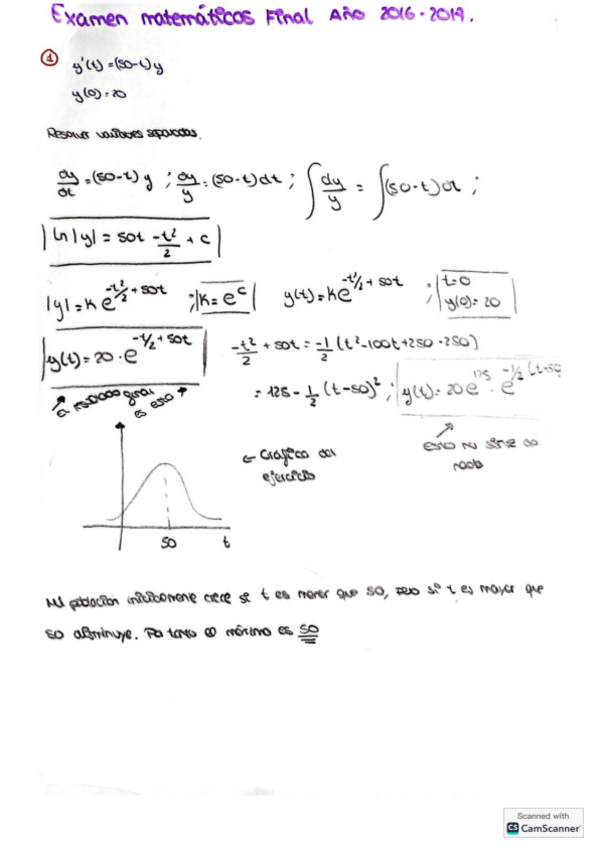 Examen matemáticas Final Año 2016-2019.
① y'(t)=(50-t)y
y(0)=20
Resolver variables separadas.
dy/dt=(50-t)y ; dy/y=(50-t)dt ; ∫dy/y = ∫(50-t)dt ;
ln|y| = 50t - t²/2 + c
|y|=k e^(-t²/2+50t) ; k=e^c y(t)=ke^(-t²/2+50t) ; t=0
y(0)=20
y(t)=20·e^(-t/2+50t) -t²/2+50t=-1/2(t²-100t+250-250)
=125-1/2(t-50)² ; y(t)=20e^125·e^(-1/2(t-50
El resultado final es esto
esto no sirve de nada
← Gráfica del
ejercicio
50 t
Mi población inicialmente crece si t es menor que 50, pero si t es mayor que
50 disminuye. Por tanto el máximo es 50
Scanned with
CS CamScanner